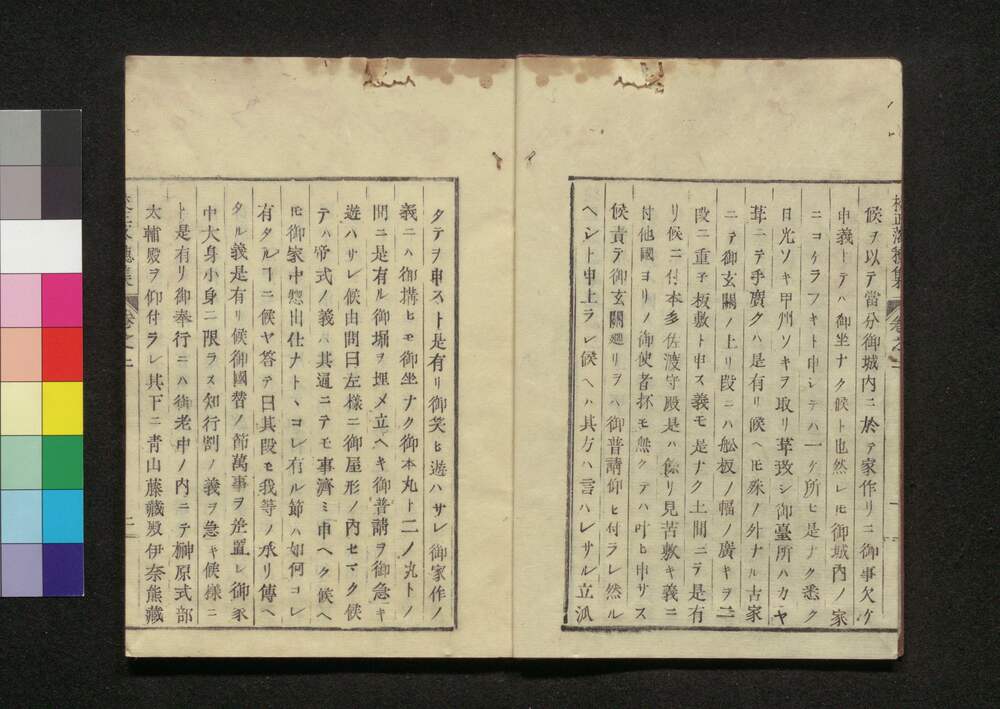 候ヲ以テ當分御城内ニ於テ家作リニ御事欠ケ
申義ーテハ御坐ナク候ト也然レ𪜈御城内ノ家
ニコケラフキト申シテハ一ケ所ヒ是ナク悉ク
日光ソキ甲州ソキヲ取リ葺玫シ御臺所ハカヤ
葺ニテ手廣クハ是有リ候ヘ𪜈殊ノ外ナル古家
ニテ御玄關ノ上リ段ニハ舩板ノ幅ノ廣キヲ二
段ニ重子板敷ト申ス義モ是ナク土間ニテ是有
リ候ニ付本多佐渡守殿是ハ餘リ見苦敷キ義ニ
付他國ヨリノ御使者抔モ無クテハ叶ヒ申サス
候責テ御玄關廻リヲハ御普請仰ヒ付ラレ然ル
ヘシト申上ラレ候ヘハ其方ハ言ハレサル立派
タテヲ申スト是有リ御笑ヒ遊ハサレ御家作ノ
義ニハ御搆ヒモ御坐ナク御本丸ト二ノ丸トノ
間ニ是有ル御堀ヲ埋メ立ヘキ御普請ヲ御急キ
遊ハサレ候由問曰左様ニ御屋形ノ内セマク候
テハ帝式ノ義ハ其通ニテモ事濟ミ申ヘク候ヘ
𪜈御家中惣出仕ナトヽコレ有ル節ハ如何コレ
有タルヿニ候ヤ答テ曰其段モ我等ノ承リ傳ヘ
タル義是有リ候御國替ノ節萬事ヲ差置レ御家
中大身小身ニ限ラス知行割ノ義ヲ急キ候様ニ
ト是有リ御奉行ニハ御老中ノ内ニテ榊原式部
太輔殿ヲ仰付ラレ其下ニ青山藤藏殿伊奈熊藏